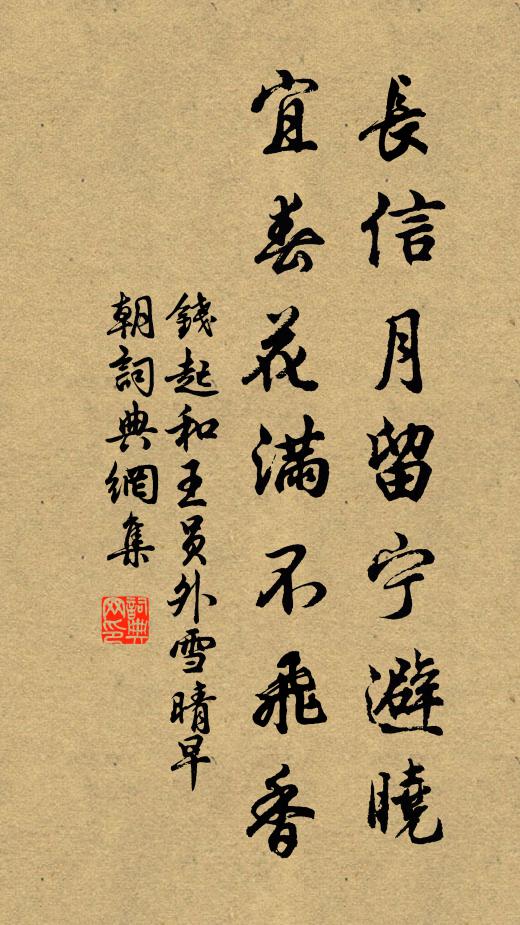 長信月留宁避曉
宜春花满不飛香
錢起和王员外雪晴早
朝詞典網集
詞典
网印